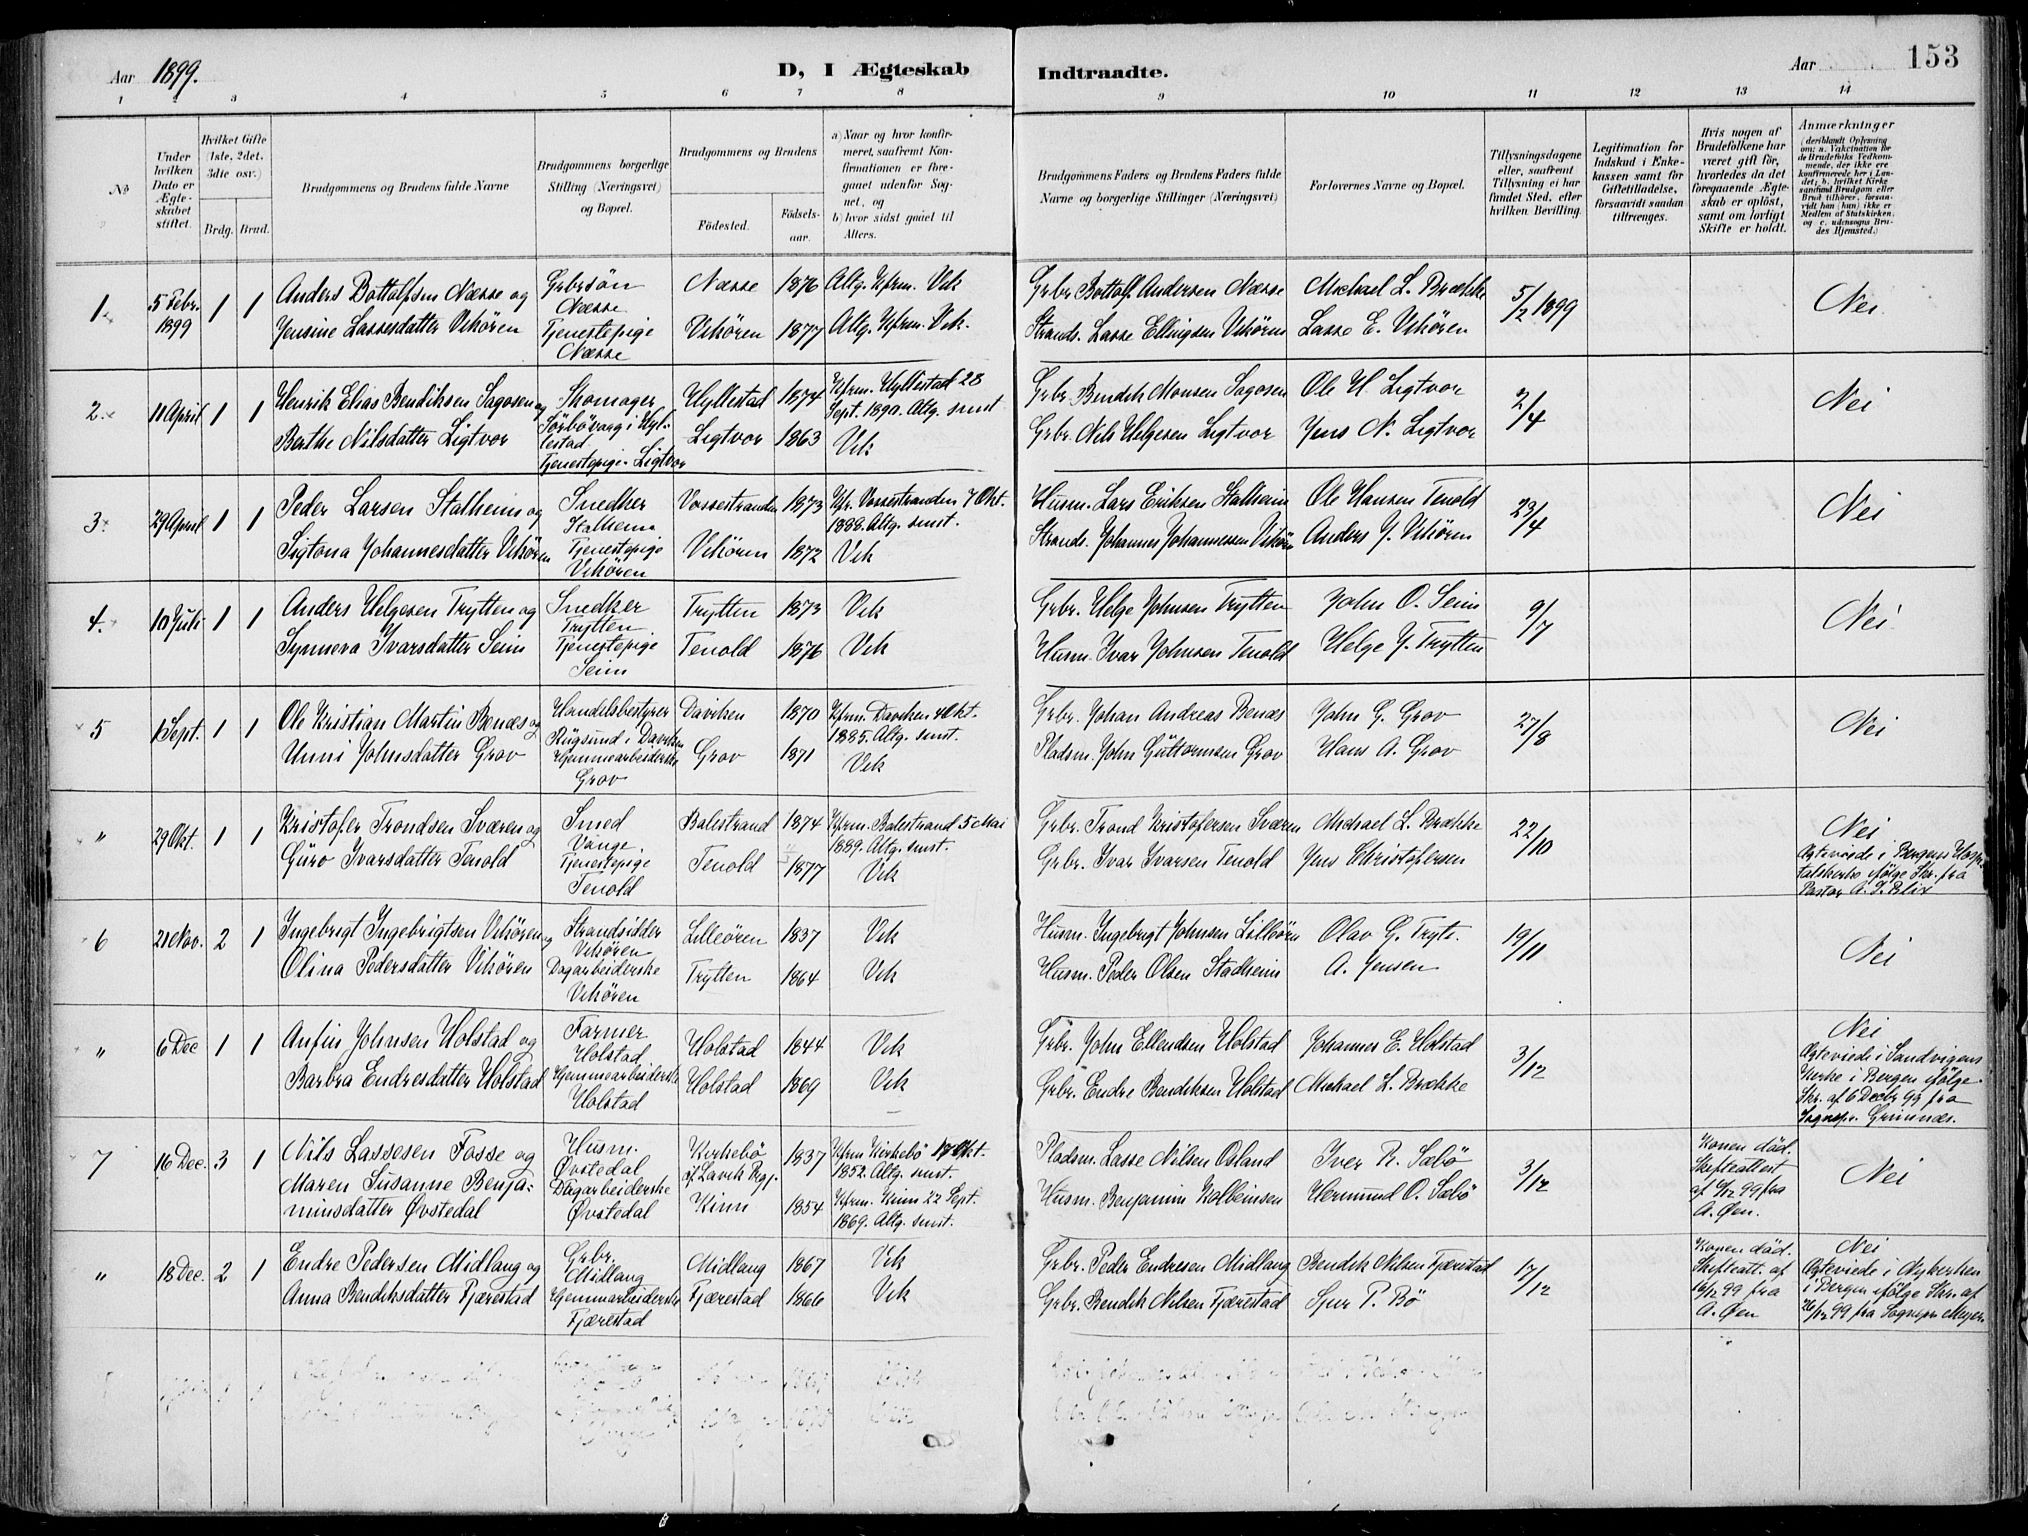 Aar 1899.
D, I Ægteskab
Indtraadte.
Aar
153
1 2 3 4 5 6 7 8 9 10 11 12 13 14
No
Under hvilken Dato er Ægteskabet stiftet.
Hvilket Gifte (1ste, 2det, 3die osv.)
Brdg. Brud.
Brudgommens og Brudens fulde Navne
Brudgommens borgerlige Stilling (Næringsvei) og Bopæl.
Brudgommens og Brudens
Födested.
Födselsaar.
a) Naar og hvor konfirmeret, saafremt Konfirmationen er foregaaet udenfor Sognet, og
b) hvor sidst gaaet til Alters.
Brudgommens Faders og Brudens Faders fulde Navne og borgerlige Stillinger (Næringsvei)
Forlovernes Navne og Bopæl.
Tillysningsdagene eller, saafremt Tillysning ei har fundet Sted, efter hvilken Bevilling.
Legitimation for Indskud i Enkekassen samt for Giftetilladelse, forsaavidt saadan tiltrænges.
Hvis nogen af Brudefolkene har været gift för, hvorledes da det foregaaende Ægteskab er oplöst, samt om lovligt Skifte er holdt.
Anmærkninger
(deriblandt Oplysning om: a. Vakcination for de Brudefolks Vedkommende, der ikke ere konfirmerede her i Landet; b. hvilket Kirkesamfund Brudgom eller Brud tilhörer, forsaavidt han (hun) ikke er Medlem af Statskirken; og c. udensogns Brudes Hjemsted.)
1. 5 Febr. 1899 1 1
Anders Bottolfsen Næsse og
Jensine Lassesdatter Vikören
Grbrsön
Næsse
Tjenestepige
Næsse
Næsse 1876
Vikören 1877
Altg. Kfrm. Vik
Altg. Kfrm. Vik.
Grbr. Bottolf Andersen Næsse
Strands. Lasse Ellingsen Vikören
Michael L. Brække
Lasse E. Vikören
5/2 1899
Nei
2. 11 April 1 1
Henrik Elias Bendiksen Sagosen og
Berthe Nilsdatter Ligtvor
Skomager
Sörbövaag i Hyllestad
Tjenestepige Ligtvor
Hyllestad 1874
Ligtvor 1863
Kfrm. Hyllestad 28
Sept. 1890. Altg. smst
Vik
Grbr. Bendik Monsen Sagosen
Grbr. Nils Helgesen Ligtvor
Ole H. Ligtvor
Jens N. Ligtvor
2/4
Nei
3. 29 April 1 1
Peder Larsen Stalheim og
Sigtona Johannesdatter Vikören
Snedker
Stalheim
Tjenestepige
Vikören
Vossestranden 1873
Vikören 1872
Kfr. Vossestranden 7 Okt.
1888. Altg. smst.
Vik
Husm. Lars Eriksen Stalheim
Strands. Johannes Johannessen Vikören
Ole Hansen Tenold
Anders J. Vikören
23/4
Nei
4. 10 Juli 1 1
Anders Helgesen Trytten og
Synneva Ivarsdatter Seim
Snedker
Trytten
Tjenestepige
Seim
Trytten 1873
Tenold 1876
Vik
Vik
Grbr. Helge Johnsen Trytten
Husm. Ivar Johnsen Tenold
John O. Seim
Helge J. Trytten
9/7
Nei.
5 1 Sept. 1 1
Ole Kristian Martin Benæs og
Unni Johnsdatter Grov
Handelsbestyrer
Rügsund i Daviken
Hjemmearbeiderske
Grov
Daviken 1870
Grov 1871
Kfrm. Daviken 4 Okt.
1885. Altg. smst.
Vik
Grbr. Johan Andreas Benæs
Pladsm. John Güttormsen Grov
John G. Grov
Hans A. Grov
27/8
Nei
" 29 Okt. 1 1
Kristofer Trondsen Sværen og
Güro Ivarsdatter Tenold
Smed
Vange.
Tjenestepige
Tenold
Balestrand 1874
Tenold 1877
Kfrm. Balestrand 5 Mai
1889. Altg. smst.
Vik
Grbr. Trond Kristofersen Sværen
Grbr. Ivar Ivarsen Tenold
Michael L. Brække
Jens Christofersen
22/10
Nei
Ægteviede i Bergens Hospitalskirke ifølge Skr. fra
Pastor A. J. Blix
6 21 Nov. 2 1
Ingebrigt Ingebrigtsen Vikören og
Olina Pedersdatter Vikören
Strandsidder
Vikören
Dagarbeiderske
Vikören
Lilleören 1837
Trytten 1864
Vik
Vik
Husm. Ingebrigt Johnsen Lilleören
Husm. Peder Olsen Stadheim
Olav G. Tryts.
A. Jensen
19/11
Nei
" 6 Dec 1 1
Anfin Johnsen Holstad og
Barbra Endresdatter Holstad
Farmer
Holstad
Hjemmearbeiderske
Holstad
Holstad 1844
Holstad 1869
Vik
Vik
Grbr. John Ellendsen Holstad
Grbr. Endre Bendiksen Holstad
Johannes E. Holstad
Michael L. Brække
3/12
Nei
Ægteviede i Sandvigens
Kirke i Bergen ifølge
Skr. af 6 Decbr 99 fra
Sognepr. Grimnæs.
7 16 Dec. 3 1
Nils Lassesen Fosse og
Maren Susanne Benjaminsdatter Øvstedal
Husm.
Øvstedal
Dagarbeiderske
Øvstedal
Kirkebö af Lavik Prgj. 1837
Kinn 1854
Kfrm Kirkebö 17 Okt.
1852. Altg. smst.
Kfrm. Kinn 22 Sept.
1869. Altg. smst.
Pladsm. Lasse Nilsen Osland
Husm. Benjamin Kolbeinsen
Iver R. Sæbö
Hermund O. Sæbö
3/12
Konen död.
Skifteattest
af 6/12 99 fra
A. Øen.
Nei
" 18 Dec. 2 1
Endre Pedersen Midlang og
Anna Bendiksdatter Fjærestad
Grbr.
Midlang
Hjemmearbeiderske
Fjærestad
Midlang 1867
Fjærestad 1866
Vik
Vik
Grbr. Peder Endresen Midlang
Grbr. Bendik Nilsen Fjærestad
Bendik Nilsen Fjærestad
Sjur P. Bö
17/12
Konen död.
Skifteatt. af
16/12 99 fra
A. Øen
Nei
Ægteviede i Nykirken
i Bergen ifølge Skr. af
26/12 99 fra Sognepr Meyer